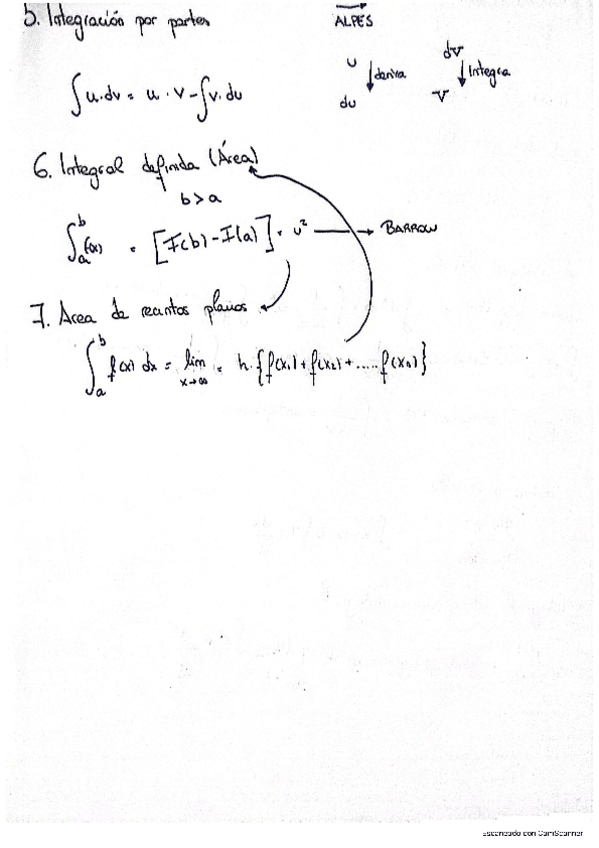 5. Integración por partes
ALPES
∫u·dv = u · v - ∫v · du
u ↓ deriva du
dv ↓ Integra v
6. Integral definida (Área)
b > a
∫ₐᵇ f(x) = [F(b) - F(a)] = u² → BARROW
7. Area de recintos planos
∫ₐᵇ f(x) dx = lim x→∞ = h·{f(x₁) + f(x₂) + ..... f(xₙ)}
Escaneado con CamScanner